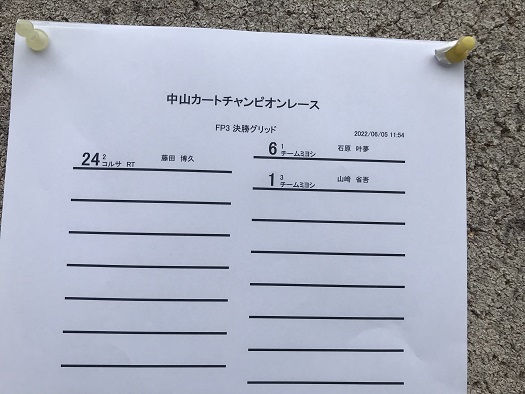 中山カートチャンピオンレース
FP3 決勝グリッド
2022/06/05 11:54
6 1 チームミヨシ 石原 叶夢
24 2 コルサ RT 藤田 博久
1 3 チームミヨシ 山崎 省吾